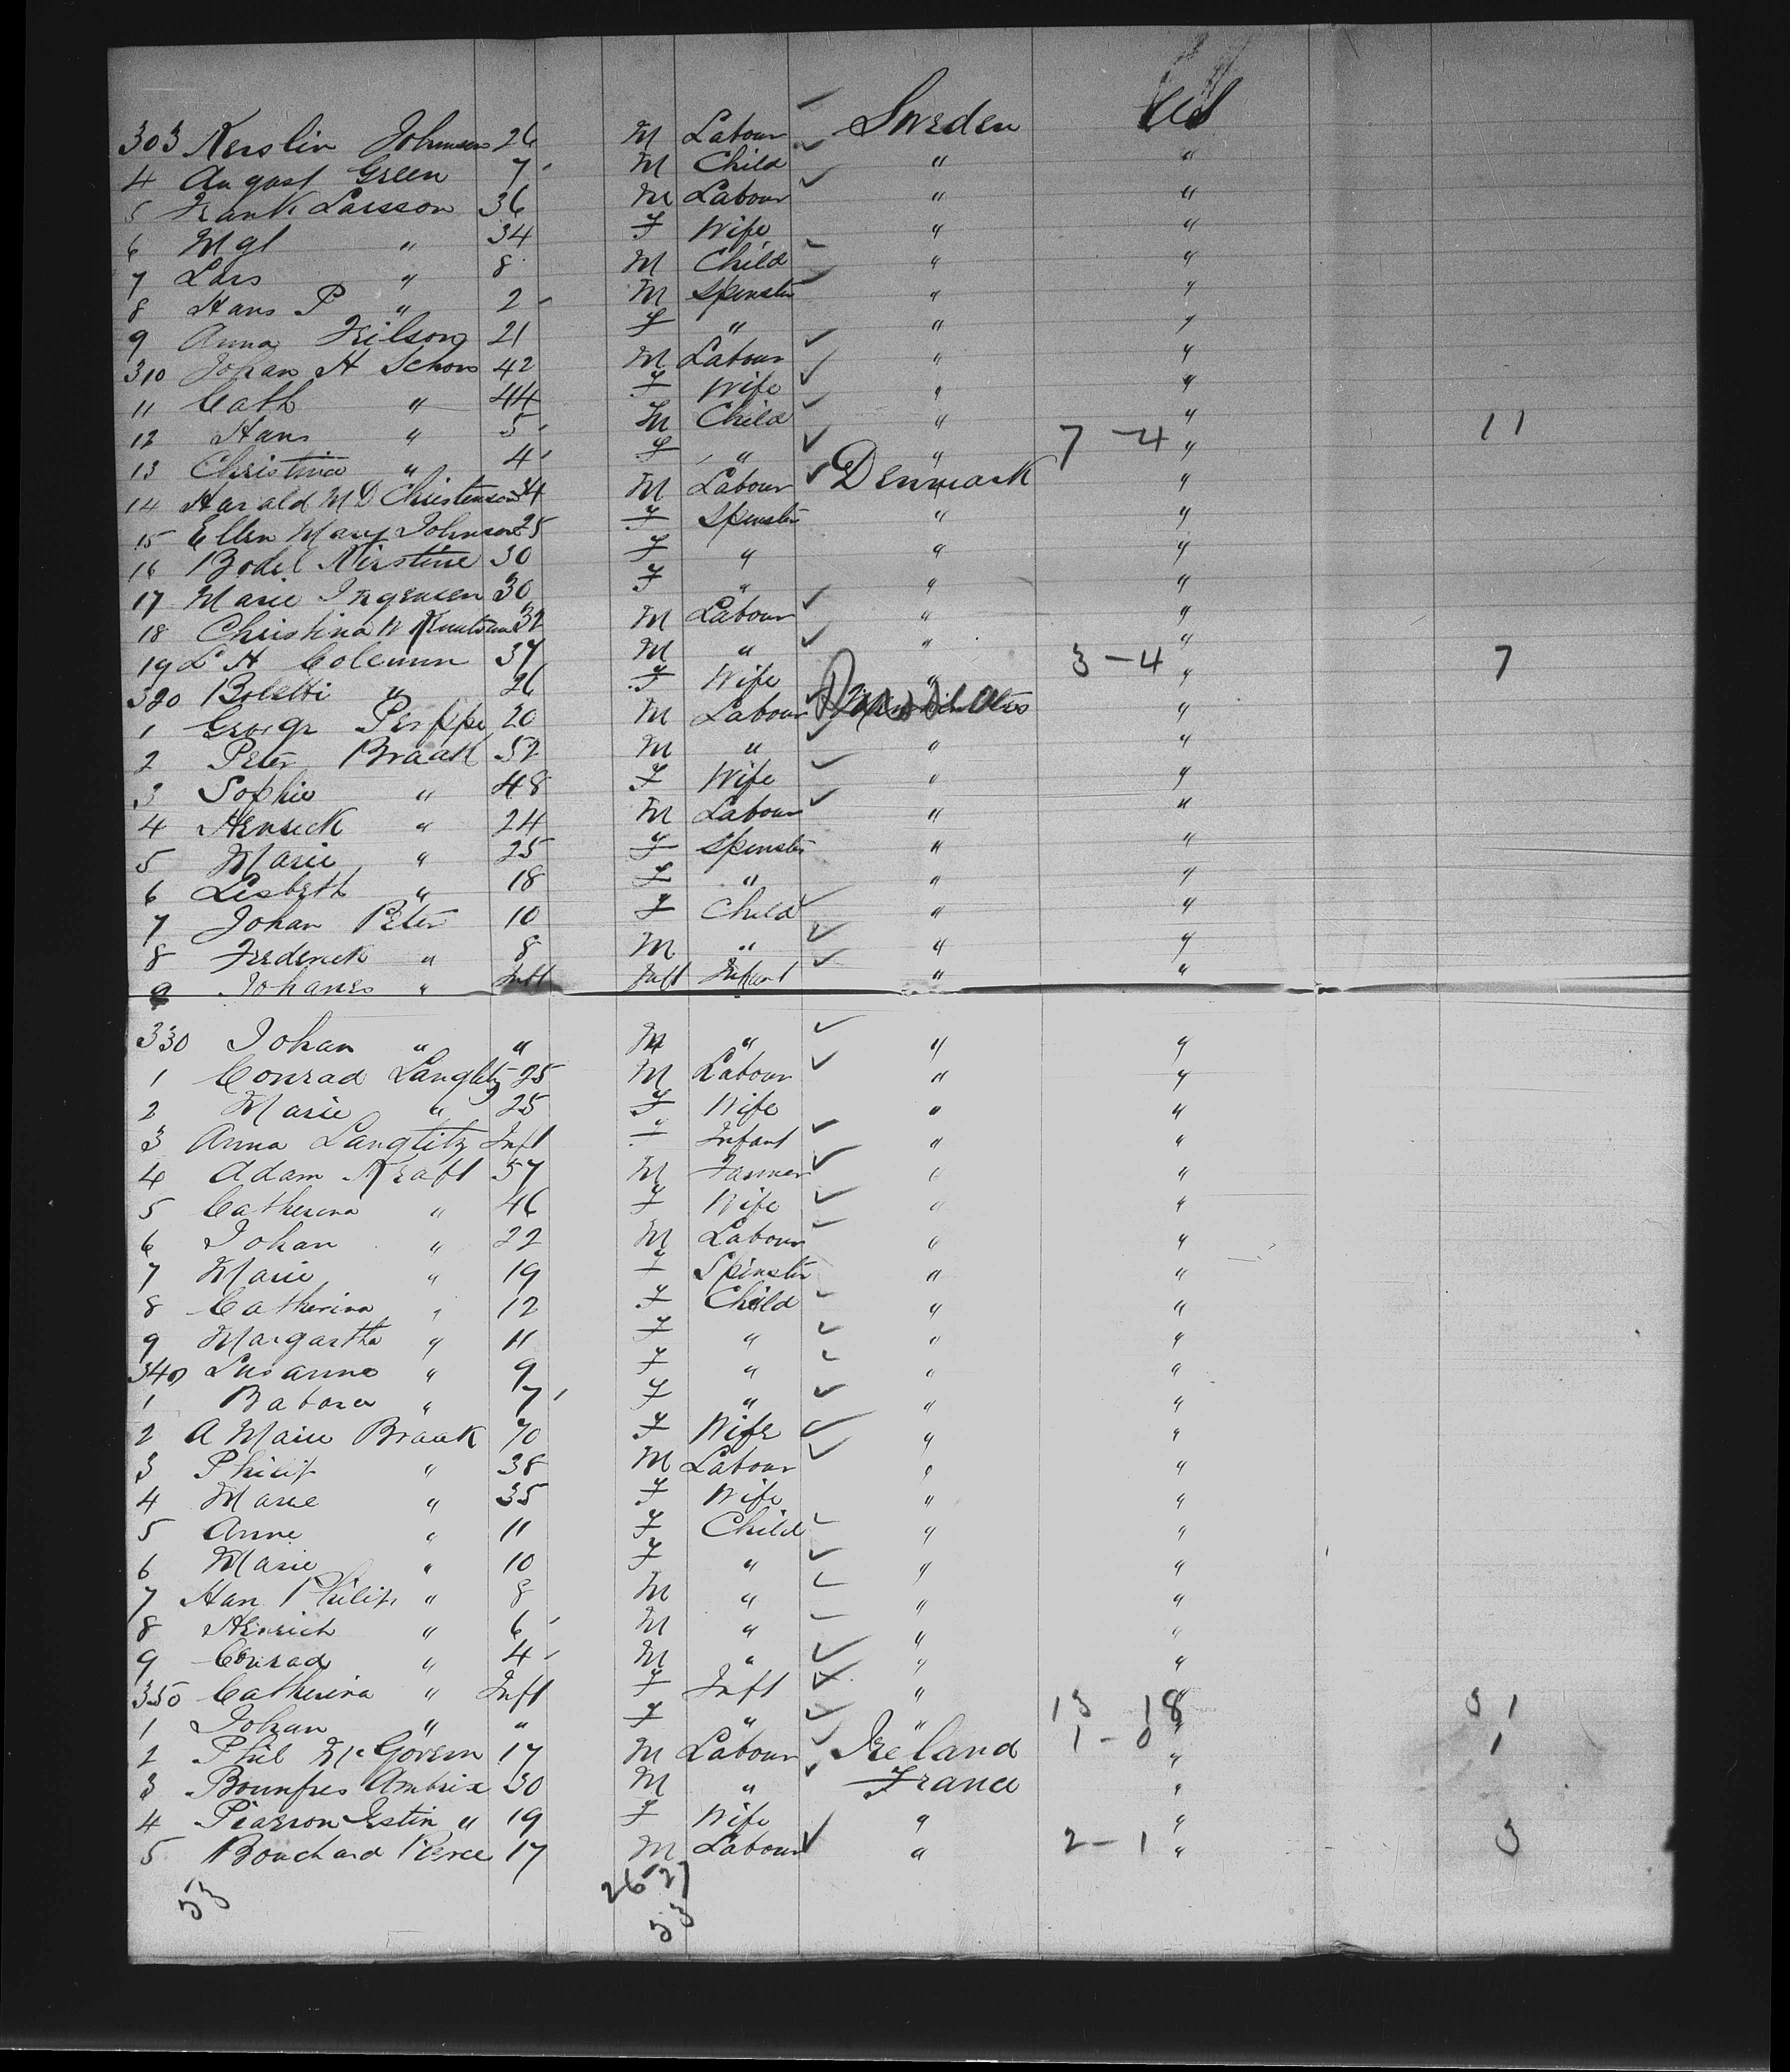 303 Kerslin Johnson 26 M Labour Sweden US
4 August Green 7 M Child " "
5 Frank Larsson 36 M Labour " "
6 Mgt " 34 F Wife " "
7 Lars " 8 M Child " "
8 Hans P " 2 M Spinster " "
9 Anna 21 F " " "
310 Johan H Schon 42 M Labour " "
11 Cath " 44 F Wife " "
12 Hans " 5 M Child " "
13 Christina " 4 F " " 7 - 4 " 11
14 Harald M D Christenson 34 M Labour Denmark "
15 Ellen Mary Johnson 25 F Spinster " "
16 Bodil Kirstine 30 F " " "
17 Marie Ingensen 30 F " " "
18 Christina N Knutson 32 M Labour " "
19 L H Colemun 37 M " " "
320 Boletti " 26 F Wife " 3 - 4 " 7
1 George 20 M Labour "
2 Peter Braak 52 M " " "
3 Sophie " 48 F Wife " "
4 Henrick " 24 M Labour " "
5 Marie " 25 F Spinster " "
6 Lisbeth " 18 F " " "
7 Johan Peter 10 F Child " "
8 Frederick " 8 M " " "
9 Johanes " Inft Inft Infant " "
330 Johan " " M " " "
1 Conrad Langlitz 25 M Labour " "
2 Marie " 25 F Wife " "
3 Anna Langlitz Inft " Infant " "
4 Adam Kraft 57 M Farmer " "
5 Catherina " 46 F Wife " "
6 Johan " 22 M Labour " "
7 Marie " 19 F Spinster " "
8 Catherina " 12 F Child " "
9 Margartha " 11 F " " "
340 Susanna " 9 F " " "
1 Babara " 7 F " " "
2 A Marie Braak 70 F Wife " "
3 Philip " 38 M Labour " "
4 Marie " 35 F Wife " "
5 Anne " 11 F Child " "
6 Marie " 10 F " " "
7 Han Philip " 8 M " " "
8 Henrich " 6 M " " "
9 Conrad " 4 M " " "
350 Catherina " Inft F Inft " "
1 Johan " " F " " 13 18 " 31
2 Phil McGovern 17 M Labour Ireland 1 - 0 " 1
3 Bounfres Ambrix 30 M " France "
4 Pierson Estin " 19 F Wife " "
5 Bouchard Pierce 17 M Labour " 2 - 1 " 3
53 26 27
53